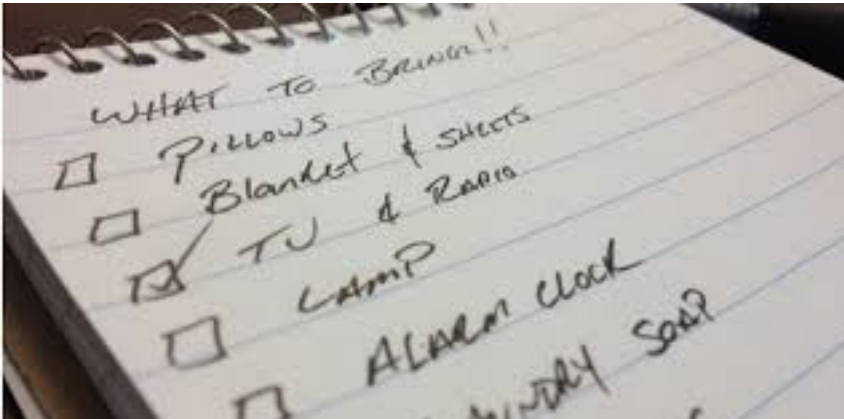 WHAT TO BRING!!
☐ PILLOWS
☐ Blanket & SHEETS
☑ TV & RADIO
☐ LAMP
☐ ALARM CLOCK
SOAP